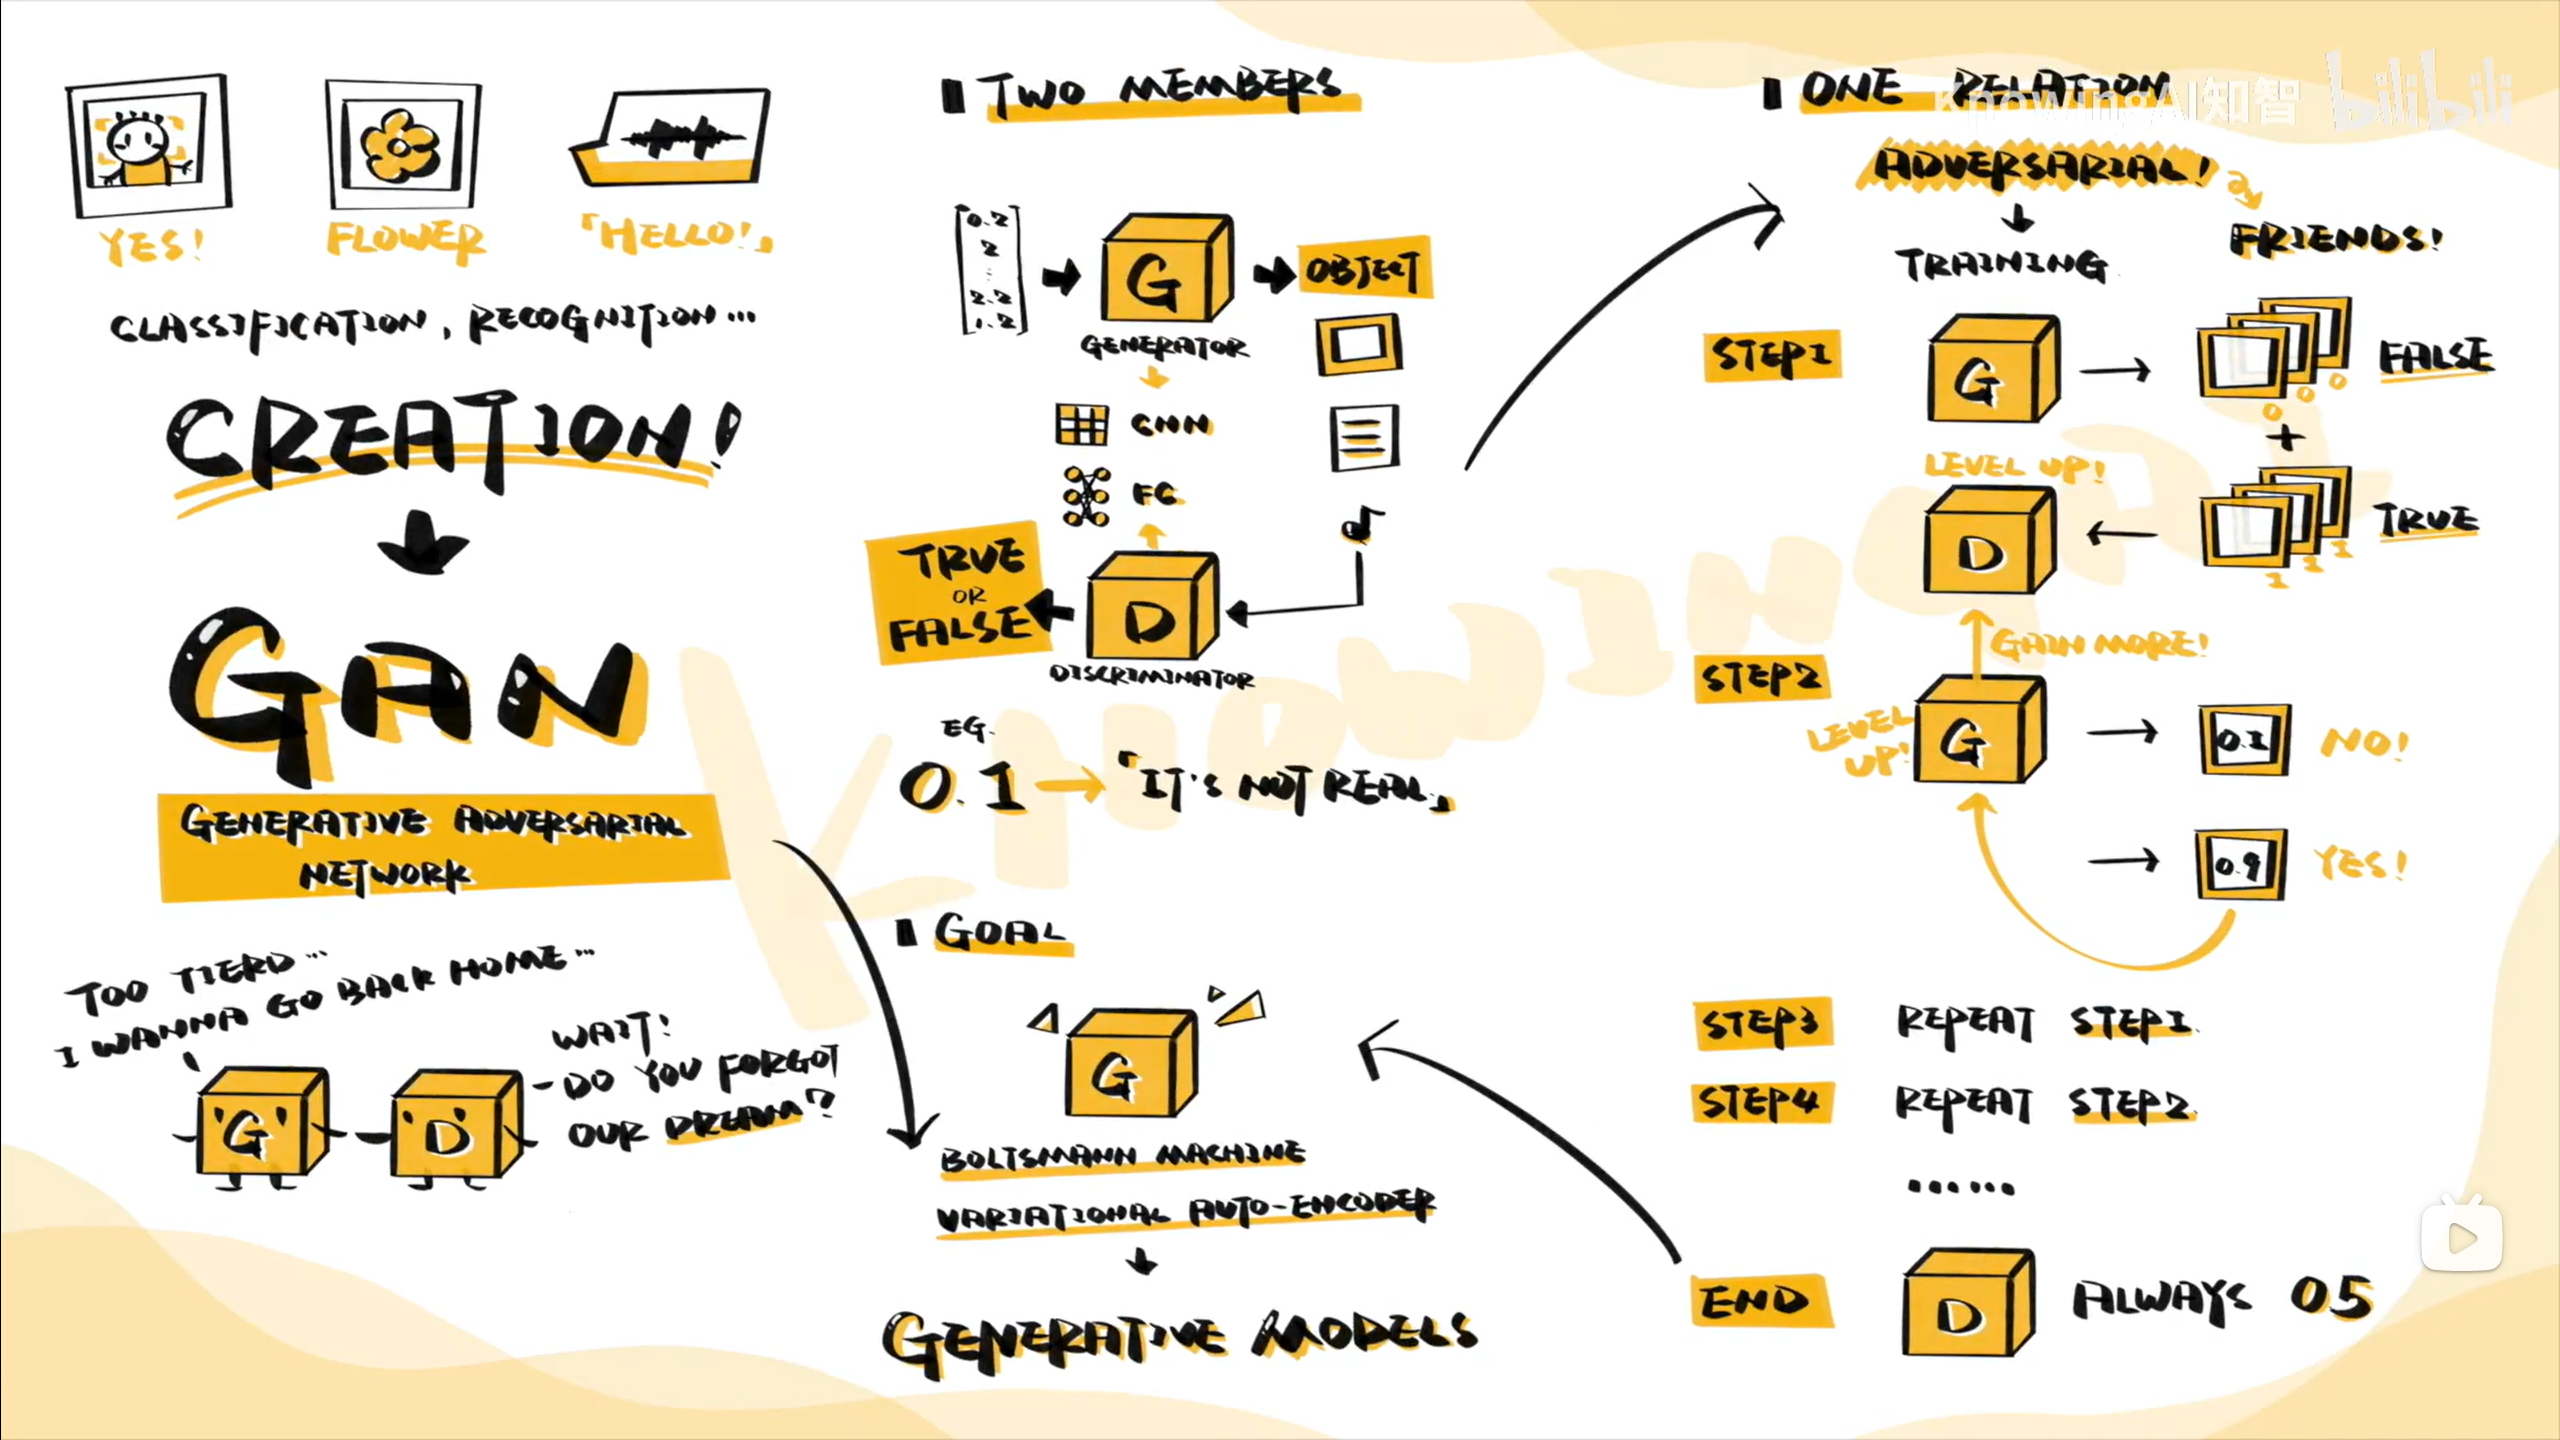 YES!
FLOWER
「HELLO!」
CLASSIFICATION, RECOGNITION...
CREATION!
GAN
GENERATIVE ADVERSARIAL
NETWORK
TOO TIERD...
I WANNA GO BACK HOME...
G
D
WAIT!
DO YOU FORGOT
OUR DREAM?
TWO MEMBERS
0.2
2
⋮
2.2
1.2
G
OBJECT
GENERATOR
CNN
FC
TRUE
OR
FALSE
D
DISCRIMINATOR
EG.
0.1 → 「IT'S NOT REAL」
GOAL
G
BOLTSMANN MACHINE
VARIATIONAL AUTO-ENCODER
GENERATIVE MODELS
ONE RELATION
ADVERSARIAL!
FRIENDS!
TRAINING
STEP1
G
FALSE
0 0 0
+
LEVEL UP!
D
TRUE
1 1 1
GAIN MORE!
STEP2
LEVEL
UP!
G
0.1
NO!
0.9
YES!
STEP3 REPEAT STEP1.
STEP4 REPEAT STEP2.
......
END
D
ALWAYS 0.5
KnowingAI知智
bilibili
KNOWINGAI